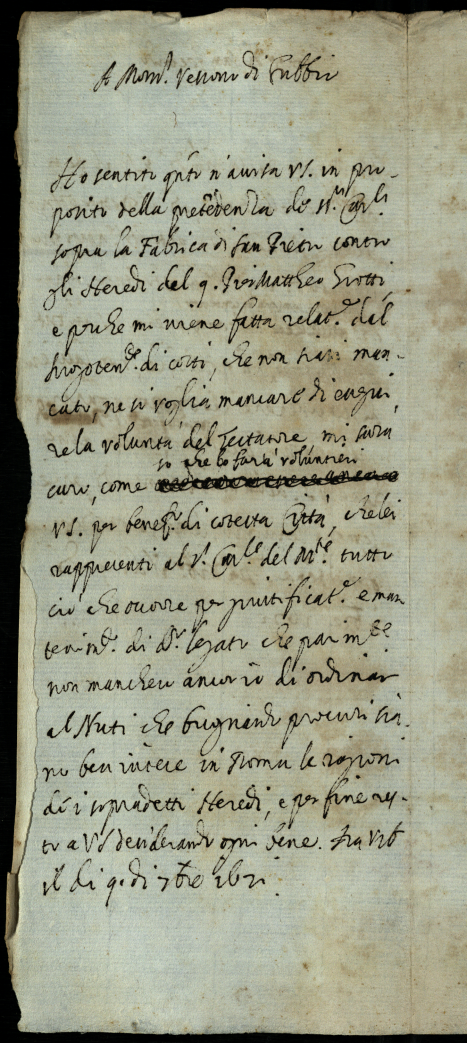 A Mons.r Vescovo di Cubbio
Ho sentito q.to m'avisa VS. in pro-
posito della pretedenza de SS.ri Car.li
sopra la Fabrica di San Pietro contro
gli Heredi del q. Pier Mattheo Grotti
e perche mi viene fatta relat.e dal
luogoten.te di costi, che non siasi man-
cato, ne si voglia mancare di esegui
re la volontà del Testatore, mi sarà
caro, come
so che lo farà volontieri
VS. per benef.o di cotesta Città, che lei
rappresenti al S.r Car.le del M.te tutto
ciò che occorre per giustificat.e e man
tenim.to di d.o legato che parim.te
non mancherò ancor io di ordinar
al Nuti che bisognando procuri sia-
no ben intese in Roma le ragioni
di i sopradetti Heredi, e per fine res-
to a VS desiderando ogni bene.
il di 9. di 7bre